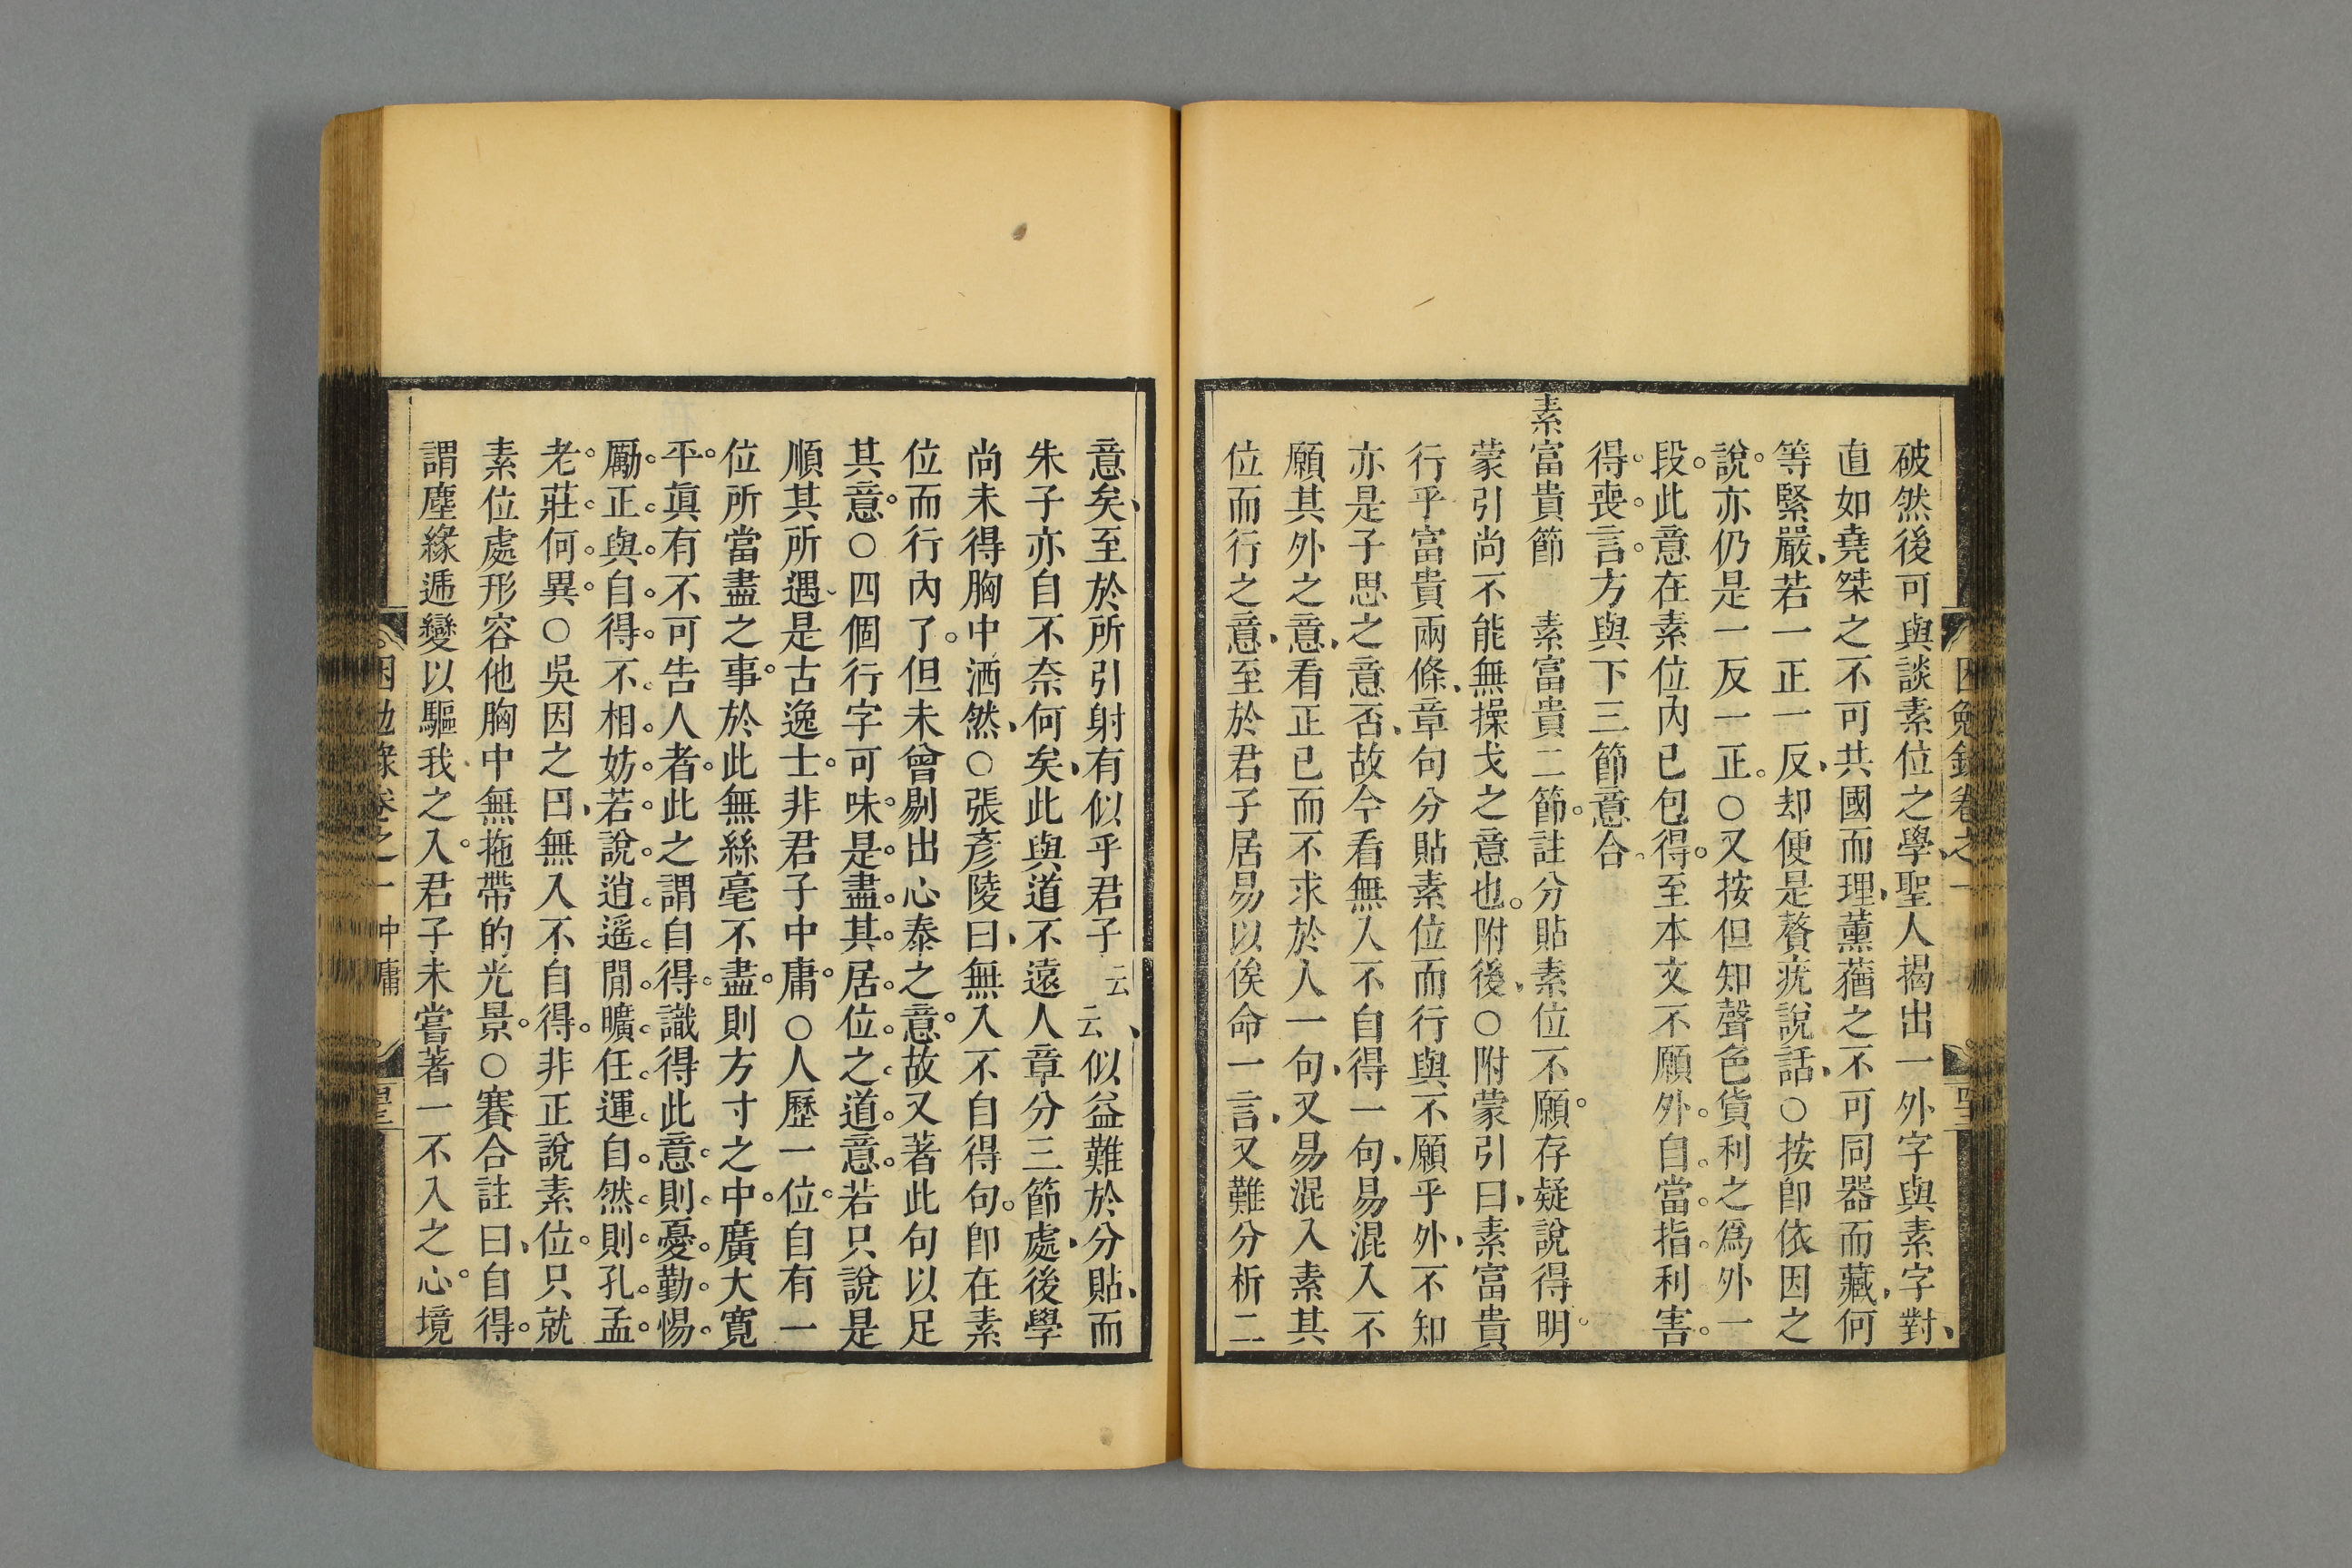 破然後可與談素位之學聖人揭出一外字與素字對
直如堯桀之不可共國而理薰蕕之不可同器而藏何
等緊嚴若一正一反却便是贅疣說話○按卽依因之
說亦仍是一反一正○又按但知聲色貨利之爲外一
段此意在素位內已包得至本文不願外自當指利害
得喪言方與下三節意合
素富貴節　素富貴二節註分貼素位不願存疑說得明
蒙引尚不能無操戈之意也附後○附蒙引曰素富貴
行乎富貴兩條章句分貼素位而行與不願乎外不知
亦是子思之意否故今看無入不自得一句易混入不
願其外之意看正已而不求於人一句又易混入素其
位而行之意至於君子居易以俟命一言又難分析二
意矣至於所引射有似乎君子云云似益難於分貼而
朱子亦自不奈何矣此與道不遠人章分三節處後學
尚未得胸中洒然○張彥陵曰無入不自得句卽在素
位而行內了但未曾剔出心泰之意故又著此句以足
其意○四個行字可味是盡其居位之道意若只說是
順其所遇是古逸士非君子中庸○人歷一位自有一
位所當盡之事於此無絲毫不盡則方寸之中廣大寬
平眞有不可告人者此之謂自得識得此意則憂勤惕
厲正與自得不相妨若說逍遙閒曠任運自然則孔孟
老莊何異○吳因之曰無入不自得非正說素位只就
素位處形容他胸中無拖帶的光景○賽合註曰自得
謂塵緣遞變以驅我之入君子未嘗著一不入之心境
卷之一 中庸